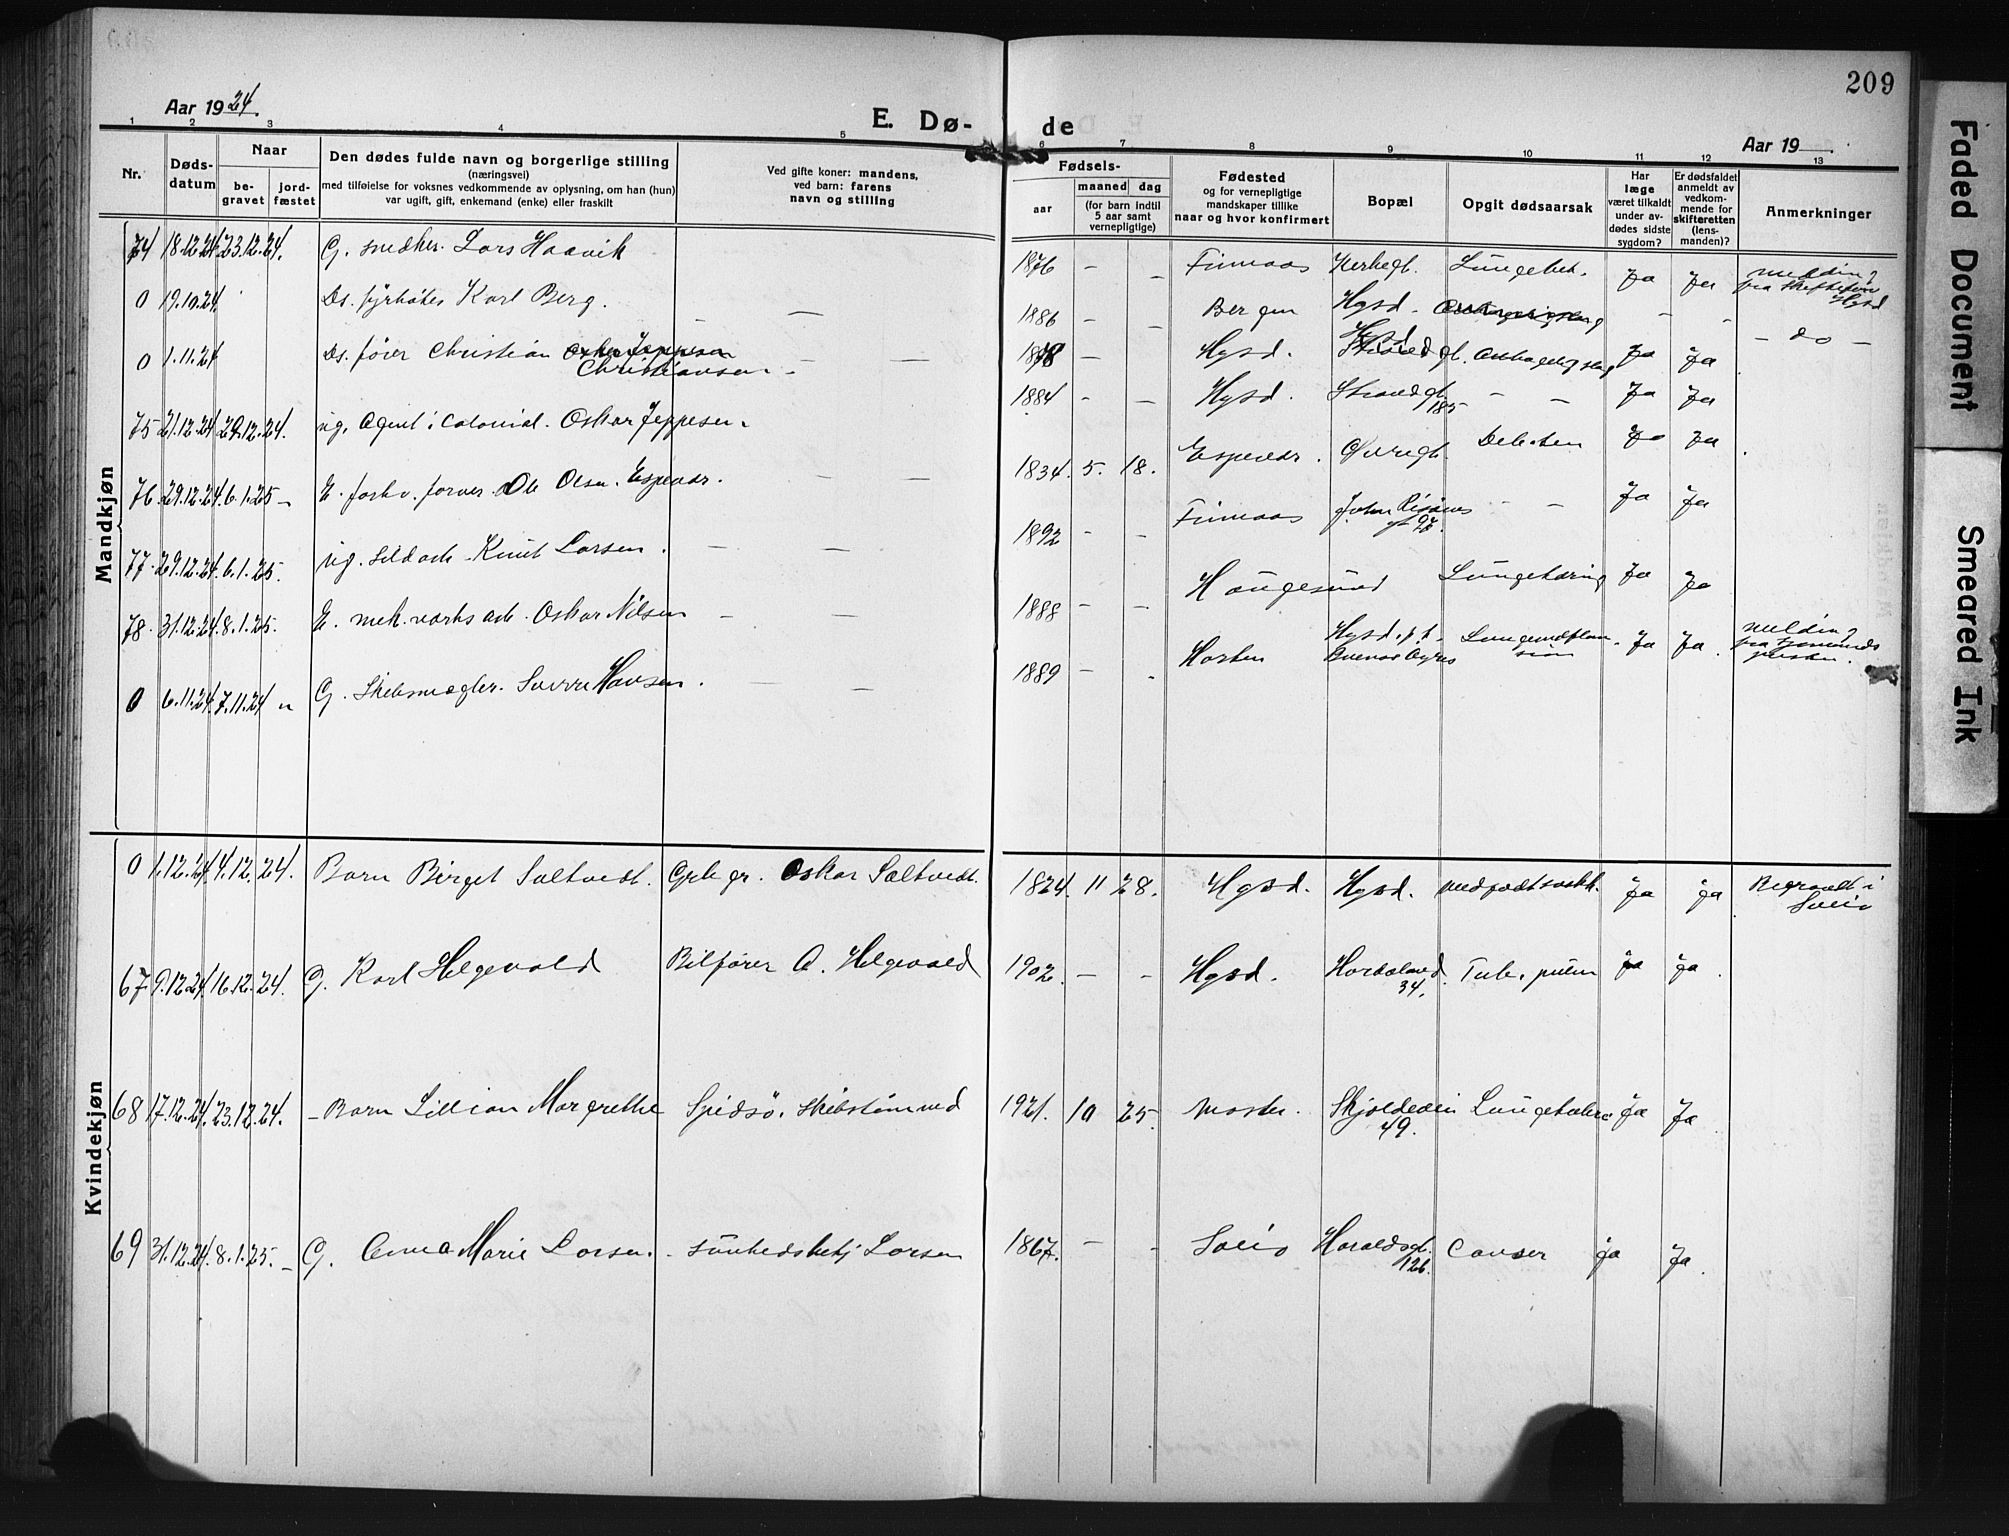 209
Aar 1924.
E. Dø-
de
Aar 19
1 2 3 4 5 6 7 8 9 10 11 12 13
Nr.
Døds-
datum
Naar
be-
gravet
jord-
fæstet
Den dødes fulde navn og borgerlige stilling
(næringsvei)
med tilføielse for voksnes vedkommende av oplysning, om han (hun)
var ugift, gift, enkemand (enke) eller fraskilt
Ved gifte koner: mandens,
ved barn: farens
navn og stilling
Fødsels-
aar
maaned
dag
(for barn indtil
5 aar samt
vernepligtige)
Fødested
og for vernepligtige
mandskaper tillike
naar og hvor konfirmert
Bopæl
Opgit dødsaarsak
Har
læge
været tilkaldt
under av-
dødes sidste
sygdom?
Er dødsfaldet
anmeldt av
vedkom-
mende for
skifteretten
(lens-
manden)?
Anmerkninger
Mandkjøn
74 18.12.24 23.12.24. G. snedker. Lars Haavik 1876 - - Finnaas Kirkegt. Lungebet. Ja Ja melding fra skifteretten Hgsd
0 19.10.24 Ds. fyrbøter Karl Berg. - - 1886 - - Bergen Hgsd. - - - do -
0 1.11.24 Ds. fører Christian Oskar Jeppesen Christiansen - - - 1878 - Hgsd. Hgsd Strandgt. Ja Ja
75 21.12.24 29.12.24. ug. Agent i Colonial. Oskar Jeppesen. 1884 - - Hgsd. Strandgt. 185 - - Ja Ja
76. 29.12.24. 6.1.25 - E. forhv. farver. Ole Olsen. Espevær. - - 1834. 5. 18. Espevær. Øvregt. Ja Ja
77. 29.12.24. 6.1.25. ug. sildarb. Knut Larsen. - - 1892 - - Finnaas - - Ja Ja
78. 31.12.24. 8.1.25. E. mek. verks arb. Oskar Nilsen - - 1888 - - Haugesund Lungetæring Ja Ja
0 6.11.24. 7.11.24 G. Skibsmægler. Sverre Hansen. - - 1889 - Horten Hgsd. p.t. Buenos Ayres Ja Ja. melding fra
Kvindekjøn
0 1.12.24. 4.12.24. Barn Birget Saltvedt. Oskar Saltvedt. 1824. 11 28. Hgsd. Hgsd. medfødt svakh. Ja ja Begravet i Sveio
67 9.12.24. 16.12.24. G. Karl Helgevold Bilfører A. Helgevold 1902. - - Hgsd. Hordaland 34. Tub. pulm ja ja
68 17.12.24. 23.12.24. - Barn Lillian Margrethe Spidsø. Skibstømmed 1921. 10 25. Moster. Skjoldavei 49. ja Ja
69 31.12.24. 8.1.25. - G. Anna Marie Larsen. Larsen 1867. - - Sveio Haraldsgt. 126. Cancer ja Ja.
Faded Document
Smeared Ink